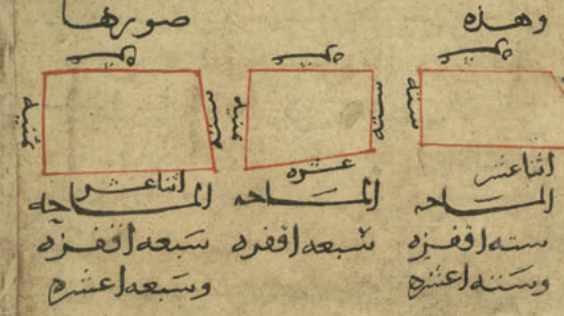 وهذه صورها
عشره
سته
اثناعشر
المساحه
سته اقفزه
وسته اعشره
عشره
سته
ثمنيه
عشره
المساحه
سبعه اقفزه
عشره
سته
ثمنيه
اثناعشر
المساحه
سبعه اقفزه
وسبعه اعشره